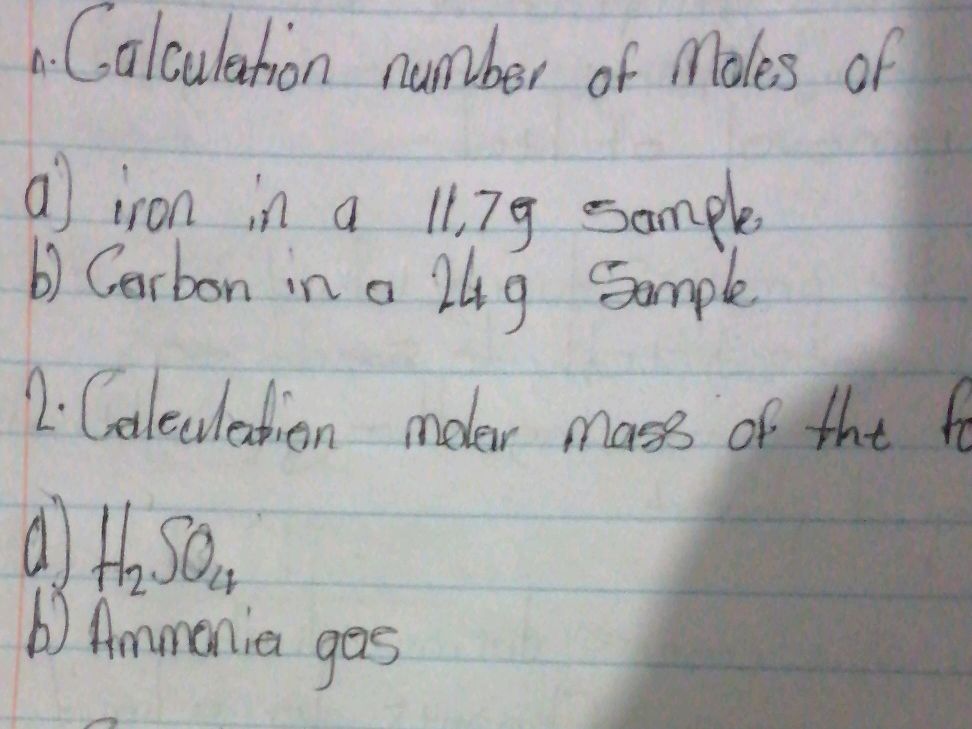 1. Calculation number of Moles of
a) iron in a 11,7g sample.
b) Carbon in a 24g Sample
2. Calculation molar mass of the fo
a) H₂SO₄
b) Ammonia gas